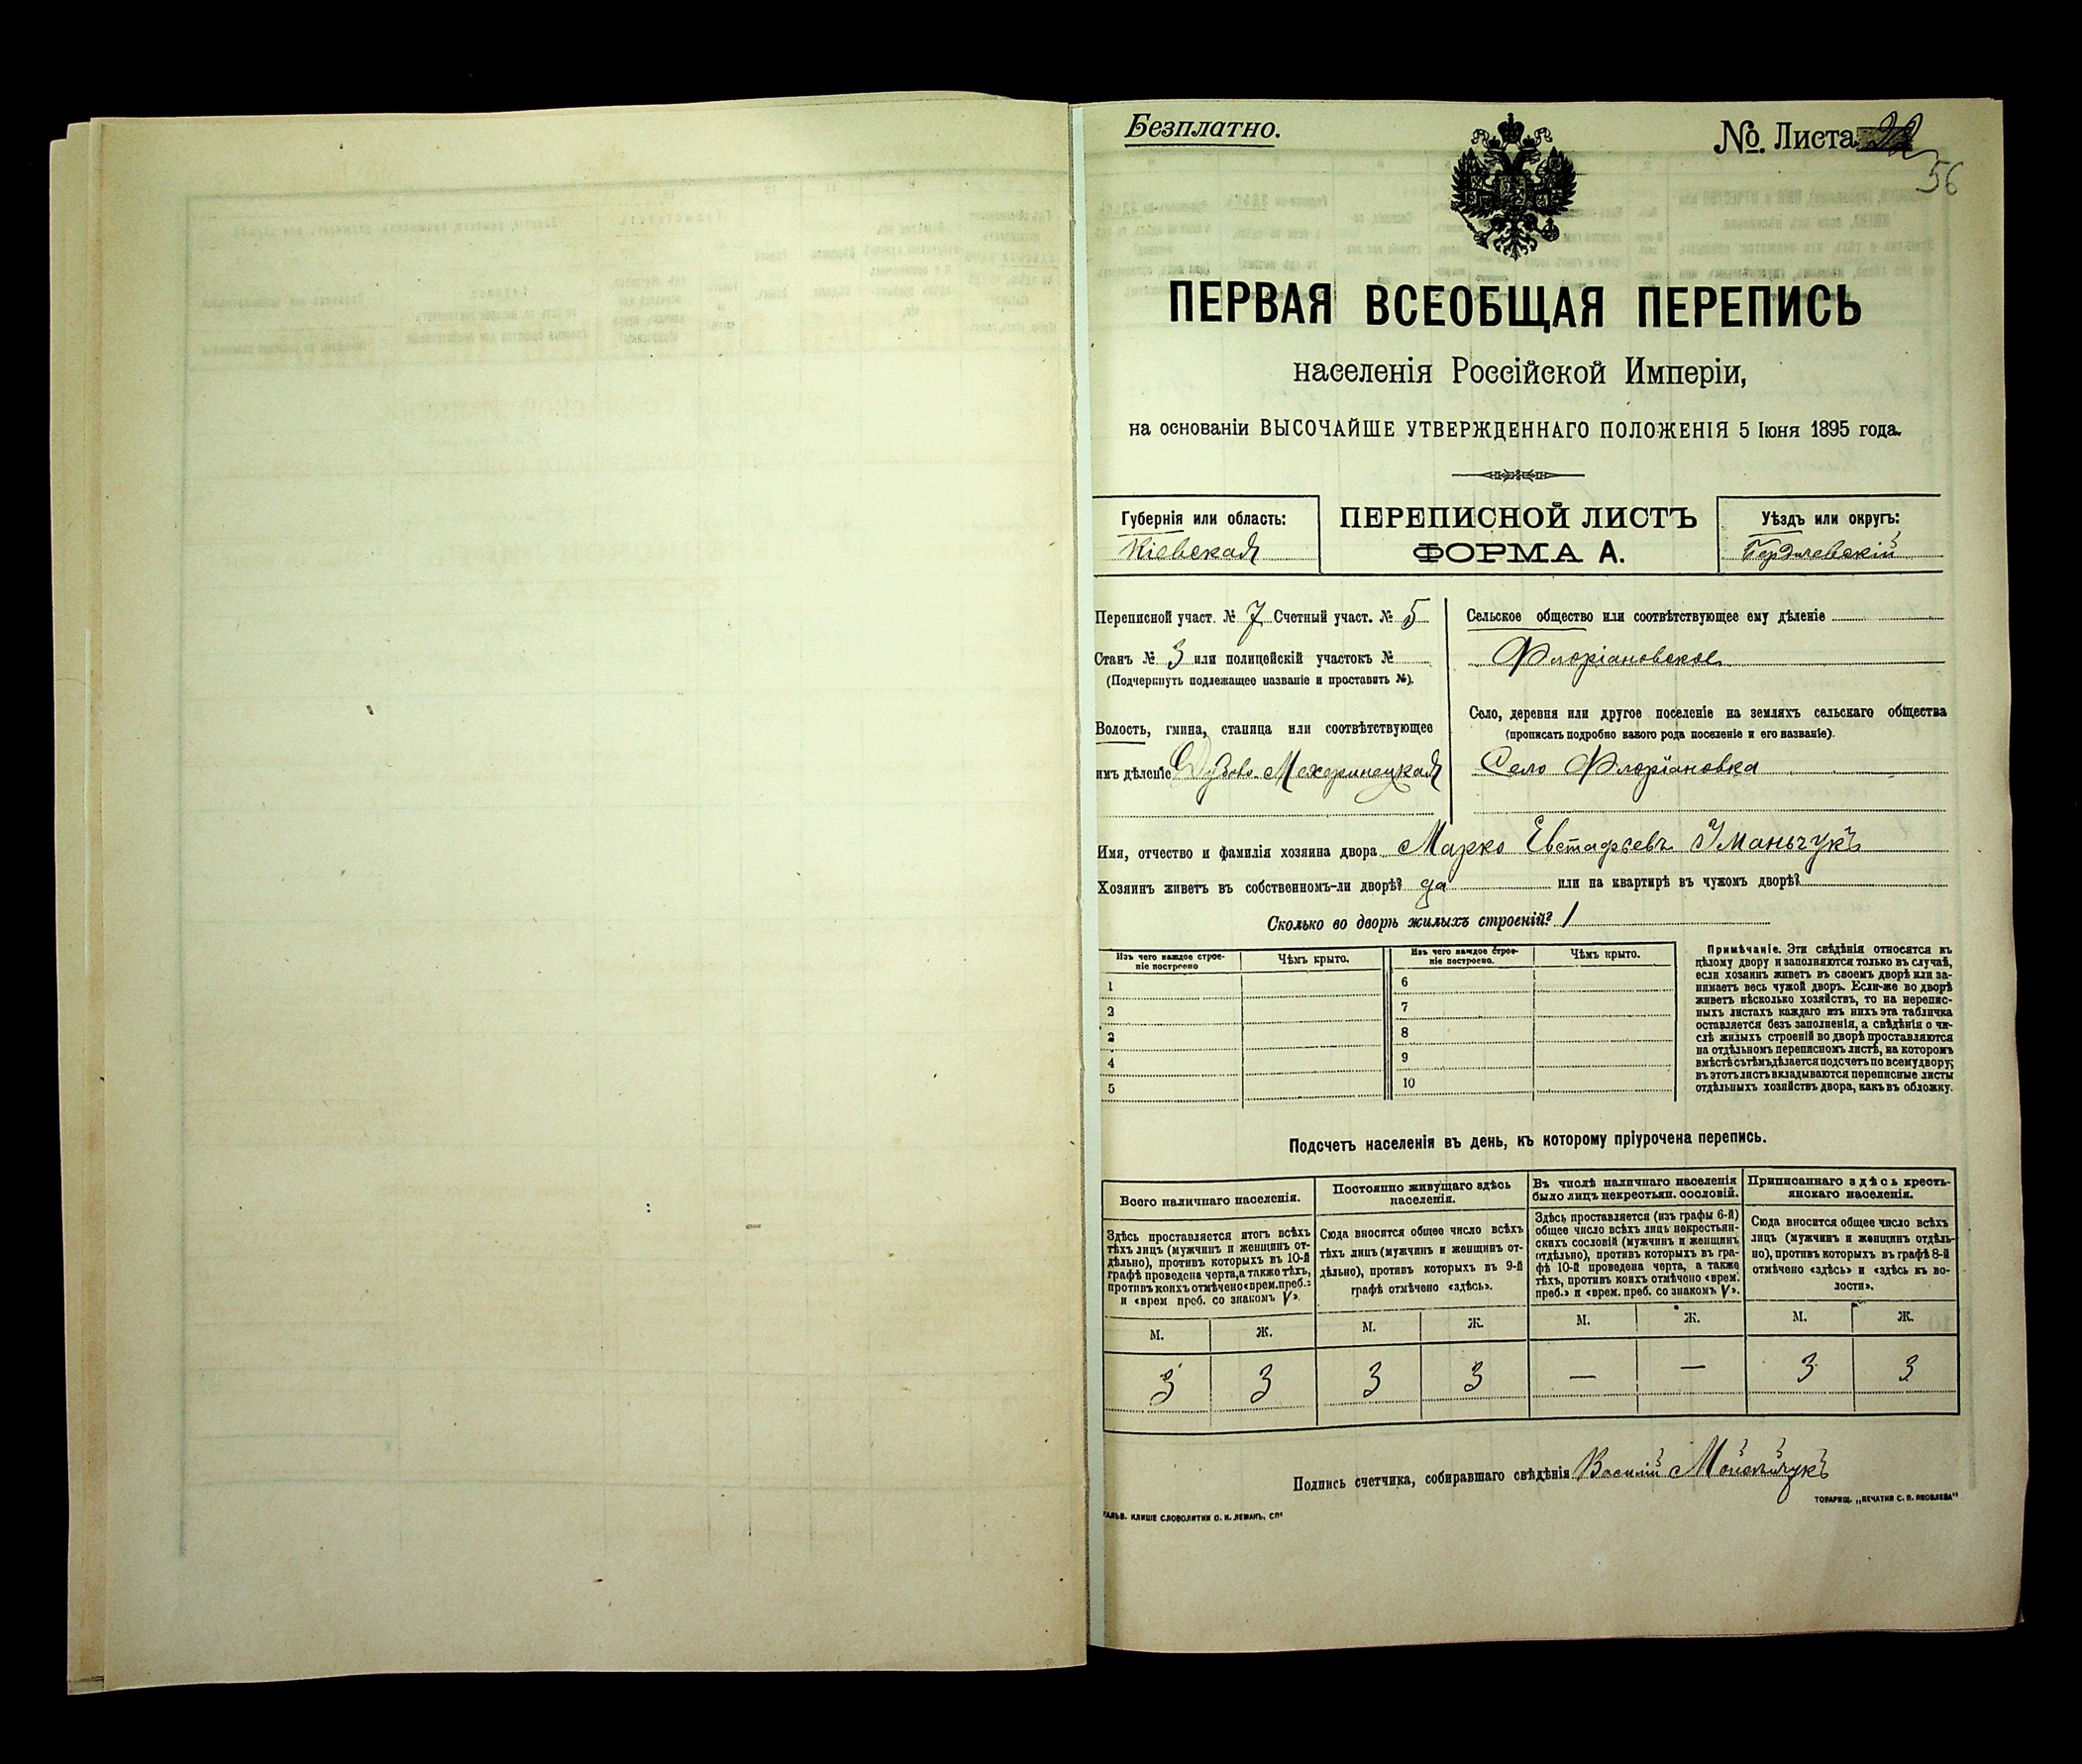 Безплатно.
№. Листа 22
56
ПЕРВАЯ ВСЕОБЩАЯ ПЕРЕПИСЬ
населенія Россійской Имперіи,
на основаніи ВЫСОЧАЙШЕ УТВЕРЖДЕННАГО ПОЛОЖЕНІЯ 5 Іюня 1895 года.
Губернія или область:
Кіевская
ПЕРЕПИСНОЙ ЛИСТЪ
ФОРМА А.
Уѣздъ или округъ:
Бердичевскій
Переписной участ. № 7 Счетный участ. № 5
Станъ № 3 или полицейскій участокъ №
(Подчеркнуть подлежащее названіе и проставить №).
Волость, гмина, станица или соотвѣтствующее
имъ дѣленіе Дубово-Махаринецкая
Сельское общество или соотвѣтствующее ему дѣленіе
Флоріановское
Село, деревня или другое поселеніе на земляхъ сельскаго общества
(прописать подробно какого рода поселеніе и его названіе).
Село Флоріановка
Имя, отчество и фамилія хозяина двора Марко Евстафьевъ Уманьчукъ
Хозяинъ живетъ въ собственномъ-ли дворѣ? да или на квартирѣ въ чужомъ дворѣ?
Сколько во дворѣ жилыхъ строеній? 1
Изъ чего каждое строе-
ніе построено
Чѣмъ крыто.
Изъ чего каждое строе-
ніе построено.
Чѣмъ крыто.
1
2
3
4
5
6
7
8
9
10
Примѣчаніе. Эти свѣдѣнія относятся къ
цѣлому двору и заполняются только въ случаѣ,
если хозяинъ живетъ въ своемъ дворѣ или за-
нимаетъ весь чужой дворъ. Если-же во дворѣ
живетъ нѣсколько хозяйствъ, то на перепис-
ныхъ листахъ каждаго изъ нихъ эта табличка
оставляется безъ заполненія, а свѣдѣнія о чи-
слѣ жилыхъ строеній во дворѣ проставляются
на отдѣльномъ переписномъ листѣ, на которомъ
вмѣстѣ съ тѣмъ дѣлается подсчетъ по всему двору;
въ этотъ листъ вкладываются переписные листы
отдѣльныхъ хозяйствъ двора, какъ въ обложку.
Подсчетъ населенія въ день, къ которому пріурочена перепись.
Всего наличнаго населенія.
Здѣсь проставляется итогъ всѣхъ
тѣхъ лицъ (мужчинъ и женщинъ от-
дѣльно), противъ которыхъ въ 10-й
графѣ проведена черта, а также тѣхъ,
противъ коихъ отмѣчено «врем. преб.»
и «врем преб. со знакомъ V».
Постоянно живущаго здѣсь
населенія.
Сюда вносится общее число всѣхъ
тѣхъ лицъ (мужчинъ и женщинъ от-
дѣльно), противъ которыхъ въ 9-й
графѣ отмѣчено «здѣсь».
Въ числѣ наличнаго населенія
было лицъ некрестьян. сословій.
Здѣсь проставляется (изъ графы 6-й)
общее число всѣхъ лицъ некрестьян-
скихъ сословій (мужчинъ и женщинъ
отдѣльно), противъ которыхъ въ гра-
фѣ 10-й проведена черта, а также
тѣхъ, противъ коихъ отмѣчено «врем.
преб.» и «врем. преб. со знакомъ V».
Приписаннаго здѣсь кресть-
янскаго населенія.
Сюда вносится общее число всѣхъ
лицъ (мужчинъ и женщинъ отдѣль-
но), противъ которыхъ въ графѣ 8-й
отмѣчено «здѣсь» и «здѣсь къ во-
лости».
М. Ж. М. Ж. М. Ж. М. Ж.
3 3 3 3 — — 3 3
Подпись счетчика, собиравшаго свѣдѣнія Василій
ТОВАРИЩ. „ПЕЧАТНЯ С. П. ЯКОВЛЕВА"
ГАЛЬВ. КЛИШЕ СЛОВОЛИТНИ О. И. ЛЕМАНЪ, СПб